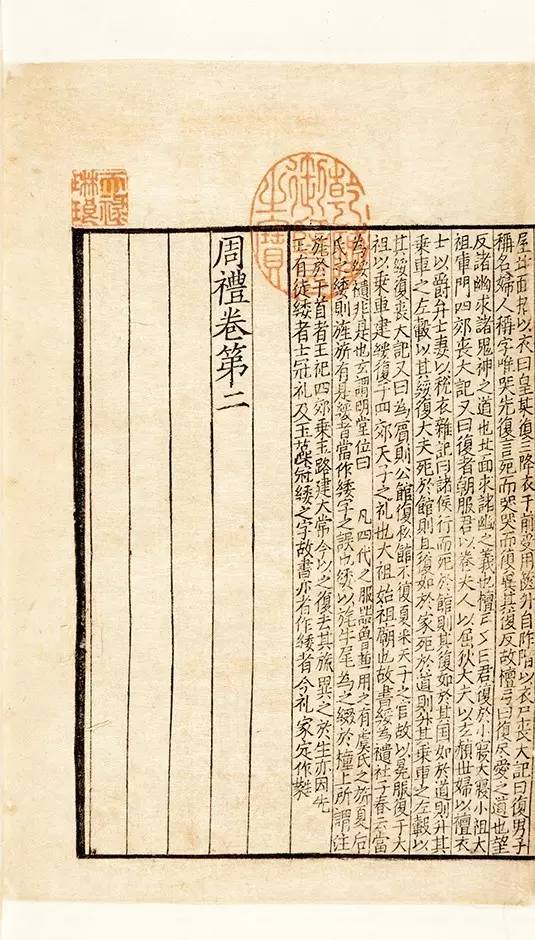 屋北面招以衣曰皇某復三降衣于前受用篋升自阼階以衣尸喪大記曰復男子
稱名婦人稱字唯哭先復言死而哭哭而復冀其復反故檀弓曰復尽愛之道也望
反諸幽求諸鬼神之道也北面求諸幽之義也檀弓又曰君復於小寢大寢小祖大
祖庫門四郊喪大記又曰復者朝服君以卷夫人以屈狄大夫以玄赬世婦以襢衣
士以爵弁士妻以稅衣雜記曰諸侯行而死於館則其復如於其国如於道則升其
乘車之左轂以其綏復大夫死於館則其復如於家死於道則升其乘車之左轂以
其綏復喪大記又曰為賓則公館復私館不復夏采天子之官故以冕服復于大
祖以乘車建綏復于四郊天子之礼也大祖始祖廟也故書綏為禮杜子春云當
為綏禮非是也玄謂明堂位曰 凡四代之服器魯兼用之有虞氏之旂夏后
氏之綏則旌旂有是綏者當作緌字之誤也緌以旄牛尾為之綴於橦上所謂注
旄於干首者王祀四郊乘玉路建大常今以之復去其旒異之於生亦因先
王有徒緌者士冠礼及玉藻冠緌之字故書亦有作緌者今礼家定作蕤
周禮卷第二
乾隆御覽之寶
天祿琳琅